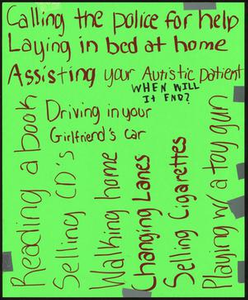 Calling the police for help
Laying in bed at home
Assisting your Autistic patient
WHEN WILL
IT END?
Driving in your
Girlfriend's car
Reading a book
Selling CD's
Walking home
Changing Lanes
Selling Cigarettes
Playing w/ a toy gun